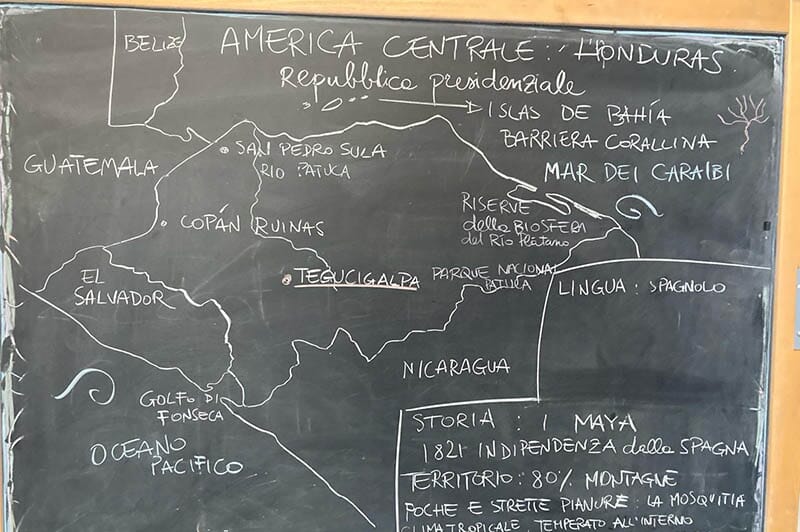 BELIZE
AMERICA CENTRALE: HONDURAS
Repubblica presidenziale
ISLAS DE BAHÍA
BARRIERA CORALLINA
MAR DEI CARAIBI
GUATEMALA
SAN PEDRO SULA
RIO PATUCA
COPÁN RUINAS
RISERVE
della BIOSFERA
del Río Plátano
EL
SALVADOR
TEGUCIGALPA
PARQUE NACIONAL
PATUCA
LINGUA: SPAGNOLO
NICARAGUA
GOLFO DI
FONSECA
OCEANO
PACIFICO
STORIA: I MAYA
1821 INDIPENDENZA dalla SPAGNA
TERRITORIO: 80% MONTAGNE
POCHE E STRETTE PIANURE: LA MOSQUITIA
CLIMA TROPICALE, TEMPERATO ALL'INTERNO